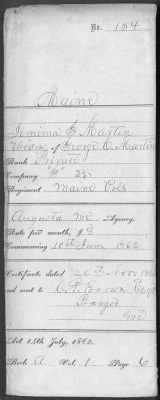 No. 184
Maine
Jemima B. Martin
Widow of George C. Martin
Rank Private
Company "H" 2d
Regiment Maine Vols
Augusta Me Agency.
Rate per month, $8
Commencing 10th June 1862
Certificate dated 26th Nov 186
and sent to C. P. Brown Esq
Bangor
Act 14th July, 1862.
Book A Vol. 1 Page 6